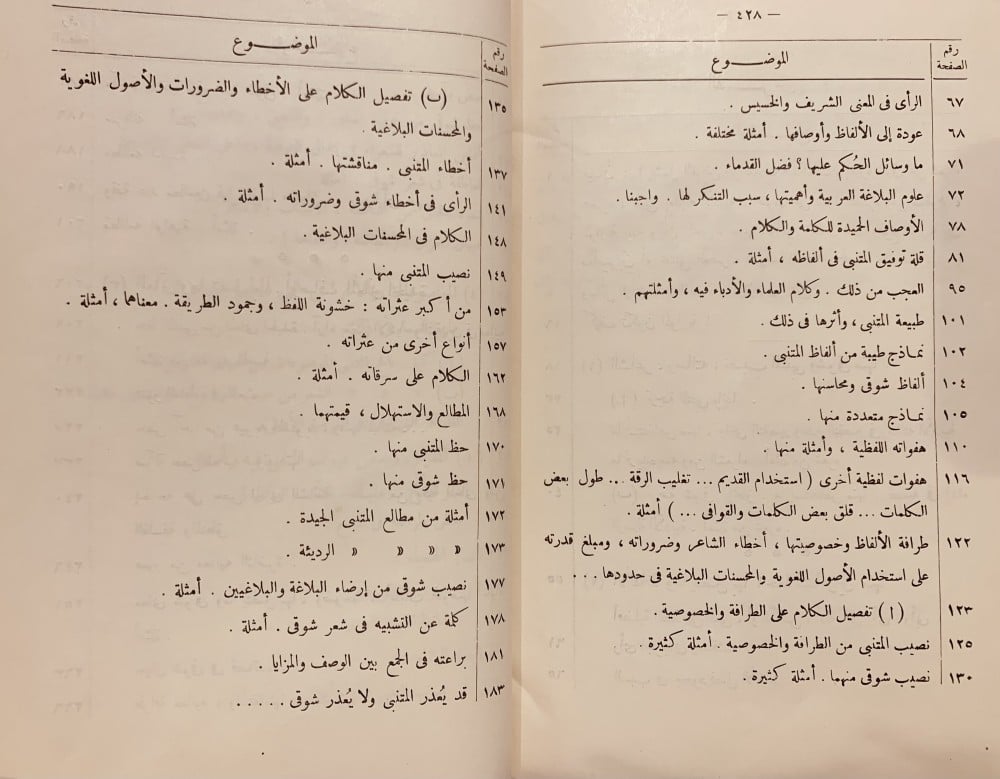 — ٤٢٨ —
رقم الصفحة الموضـــوع
٦٧ الرأى فى المعنى الشريف والخسيس .
٦٨ عودة إلى الألفاظ وأوصافها . أمثلة مختلفة .
٧١ ما وسائل الحُكم عليها ؟ فضل القدماء .
٧٢ علوم البلاغة العربية وأهميتها ، سبب التنكر لها . واجبنا .
٧٨ الأوصاف الحميدة للكلمة والكلام .
٨١ قلة توفيق المتنبى فى ألفاظه ، أمثلة .
٩٥ العجب من ذلك . وكلام العلماء والأدباء فيه ، وأمثلتهم .
١٠١ طبيعة المتنبى ، وأثرها فى ذلك .
١٠٢ نمـاذج طيبة من ألفاظ المتنبى .
١٠٤ ألفاظ شوقى ومحاسنها .
١٠٥ نمـاذج متعددة منها .
١١٠ هفواته اللفظية ، وأمثلة منها .
١١٦ هفوات لفظية أخرى ( استخدام القديم ... تغليب الرقة ... طول بعض
الكلمات ... قلق بعض الكلمات والقوافى ... ) أمثلة .
١٢٢ طرافة الألفاظ وخصوصيتها ، أخطاء الشاعر وضروراته ، ومبلغ قدرته
على استخدام الأصول اللغوية والمحسنات البلاغية فى حدودها ...
١٢٣ ( ا ) تفصيل الكلام على الطرافة والخصوصية .
١٢٥ نصيب المتنبى من الطرافة والخصوصية . أمثلة كثيرة .
١٣٠ نصيب شوقى منهما . أمثلة كثيرة .
رقم الصفحة الموضـــوع
١٣٥ (ب) تفصيل الكلام على الأخطاء والضرورات والأصول اللغوية
والمحسنات البلاغية .
١٣٧ أخطاء المتنبى . مناقشتها . أمثلة .
١٤١ الرأى فى أخطاء شوقى وضروراته . أمثلة .
١٤٨ الكلام فى المحسنات البلاغية .
١٤٩ نصيب المتنبى منها .
١٥٣ من أكبر عثراته : خشونة اللفظ ، وجمود الطريقة . معناهما ، أمثلة .
١٥٧ أنواع أخرى من عثراته .
١٦٢ الكلام على سرقاته . أمثلة .
١٦٨ المطالع والاستهلال ، قيمتهما .
١٧٠ حظ المتنبى منها .
١٧١ حظ شوقى منها .
١٧٢ أمثلة من مطالع المتنبى الجيدة .
١٧٣ » » » » الرديئة .
١٧٧ نصيب شوقى من إرضاء البلاغة والبلاغيين . أمثلة .
١٧٨ كلمة عن التشبيه فى شعر شوقى . أمثلة .
١٨١ براعته فى الجمع بين الوصف والمزايا .
١٨٣ قد يُعذر المتنبى ولا يُعذر شوقى . . . . .